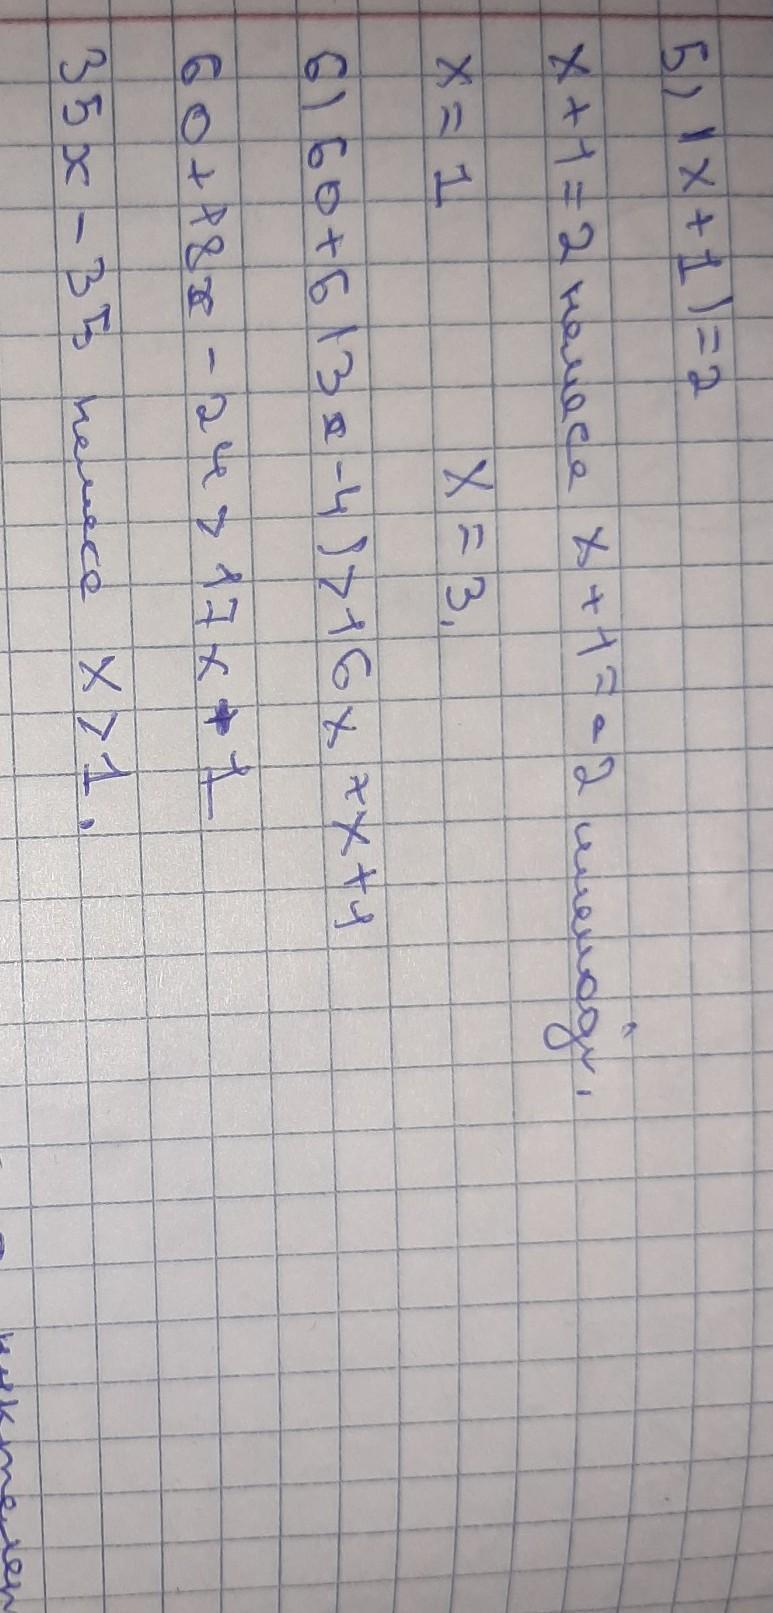 5) |x+1|=2
x+1=2 немесе x+1=-2
x=1 x=3.
6) 60+6(3x-4)>16x+x+1
60+18x-24>17x+1
35x-35 немесе x>1.